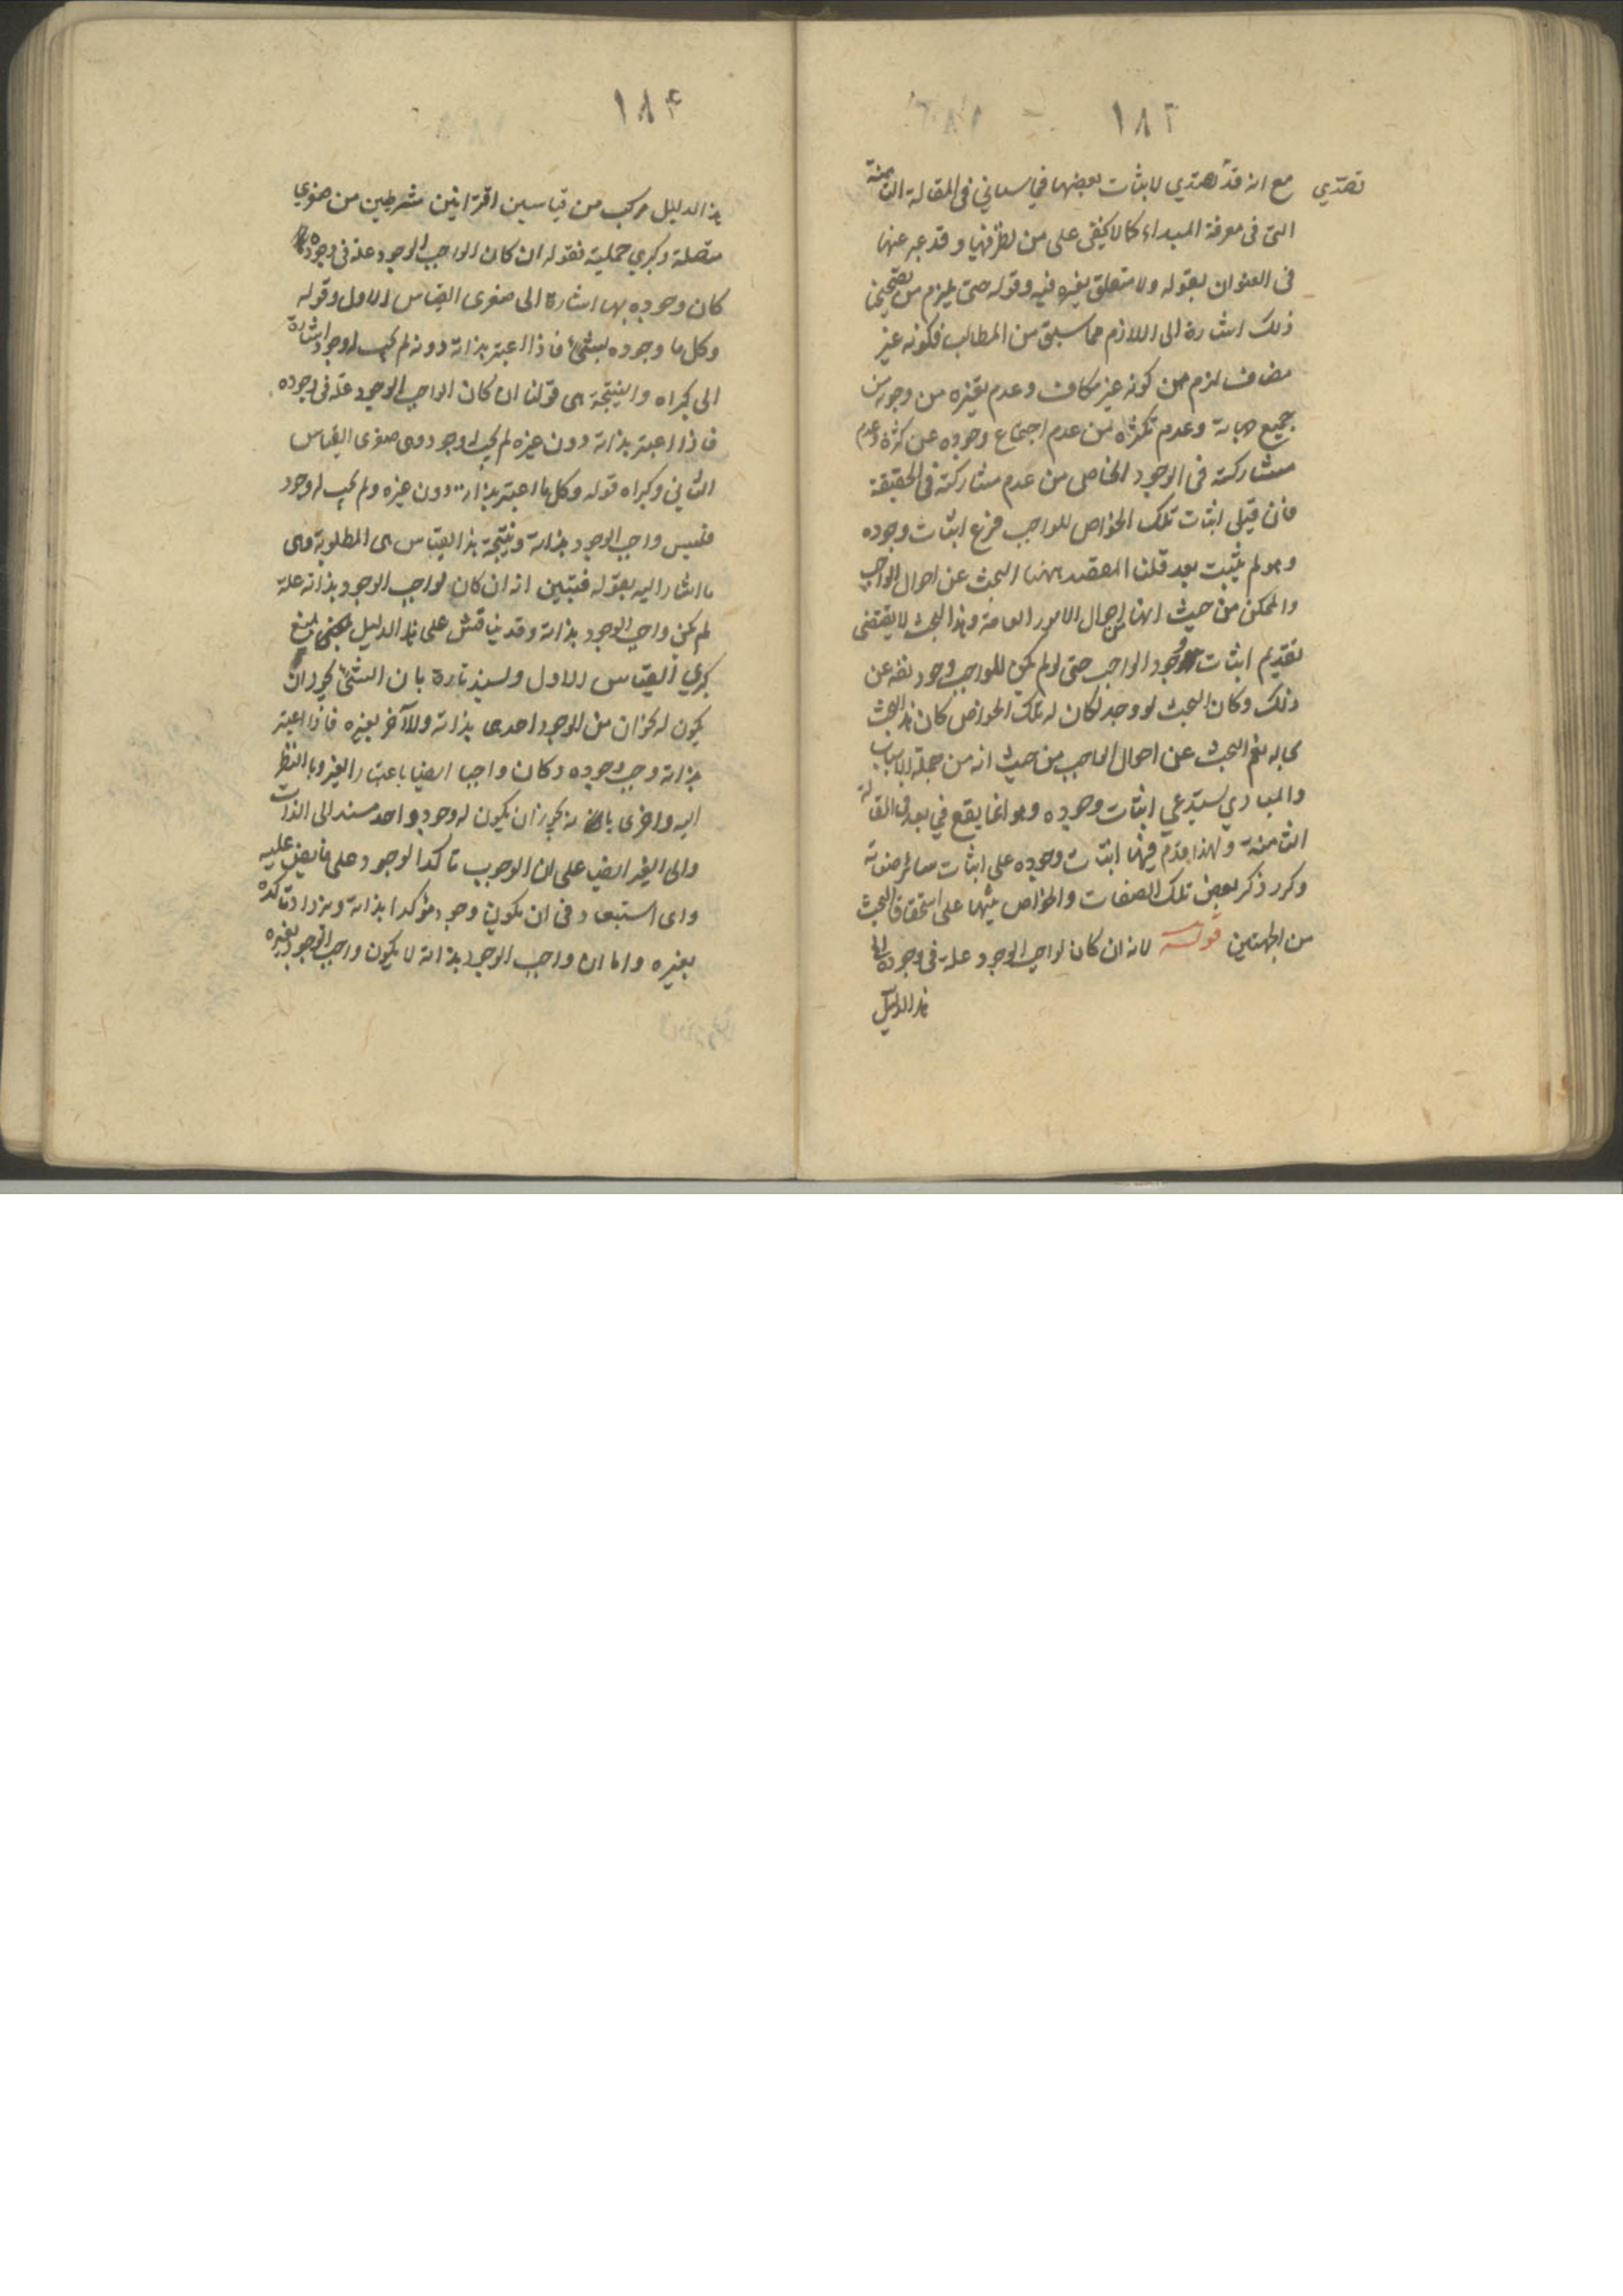 ١٨٣
تصدي
مع انه قد تصدي لاثبات بعضها فيما سياتي في المقالة الثامنة
التي في معرفة المبداء كما لا يخفى على من نظر فيها و قد عبر عنها
في العنوان بقوله ولا متعلق بغيره فيه وقوله حتى يلزم من تصحيحنا
ذلك اشارة الى اللازم مما سبق من المطالب فكونه غير
مضاف لزم من كونه غير مكاف وعدم تغيره من وجوبه من
جميع جهاته وعدم تكثره من عدم اجتماع وجوده عن كثرة وعدم
مشاركته في الوجود الخاص من عدم مشاركته في الحقيقة
فان قيل اثبات تلك الخواص للواجب فرع اثبات وجوده
وهو لم يثبت بعد قلنا المقصد ههنا البحث عن احوال الواجب
والممكن من حيث انها من احوال الامور العامة وهذا البحث لا يقتضى
تقديم اثبات وجود الواجب حتى لو لم يكن للواجب وجود نفسه عن
ذلك وكان البحث لو وجد لكان له تلك الخواص كان هذا البحث
بحاله نعم البحث عن احوال الواجب من حيث انه من جملة الاسباب
والمبادي يستدعي اثبات وجوده وهو انما يقع فيما بعد في المقالة
الثامنة ولهذا قدم فيها اثبات وجوده على اثبات سائر صفاته
وكرر ذكر بعض تلك الصفات والخواص تنبيها على استحقاق البحث
من الجهتين قوله لانه ان كان لواجب الوجود علة في وجوده الى
هذا الدليل
١٨۴
هذا الدليل مركب من قياسين اقترانيين شرطيين من صغرى
متصلة وكبرى حملية فقوله ان كان الواجب الوجود علة في وجوده
كان وجوده بها اشارة الى صغرى القياس الاول وقوله
وكل ما وجوده بشئ فاذا اعتبر بذاته دونه لم يجب له وجود اشارة
الى كبراه والنتيجة هى قولنا ان كان الواجب الوجود علة في وجوده
فاذا اعتبر بذاته دون غيره لم يجب له وجود وهى صغرى القياس
الثاني وكبراه قوله وكل ما اعتبر بذاته دون غيره ولم يجب له وجود
فليس واجب الوجود بذاته ونتيجة هذا القياس هى المطلوبة وهى
ما اشار اليه بقوله فتبين انه ان كان لواجب الوجود بذاته علة
لم يكن واجب الوجود بذاته وقد يناقش على هذا الدليل بمنع
كبرى القياس الاول ويسند تارة بان الشئ يجوز ان
يكون له نحوان من الوجود احدهى بذاته والآخر بغيره فاذا اعتبر
بذاته وجب وجوده وكان واجبا ايضا باعتبار الغير وبالنظر
اليه واخرى بانه يجوز ان يكون له وجود واحد مستند الى الذات
والى الغير ايضا على ان الوجوب تاكد الوجود على ما نص عليه
واى استبعاد في ان يكون وجود مؤكدا بذاته ويزداد تاكده
بغيره واما ان واجب الوجود بذاته لا يكون واجب الوجود بغيره